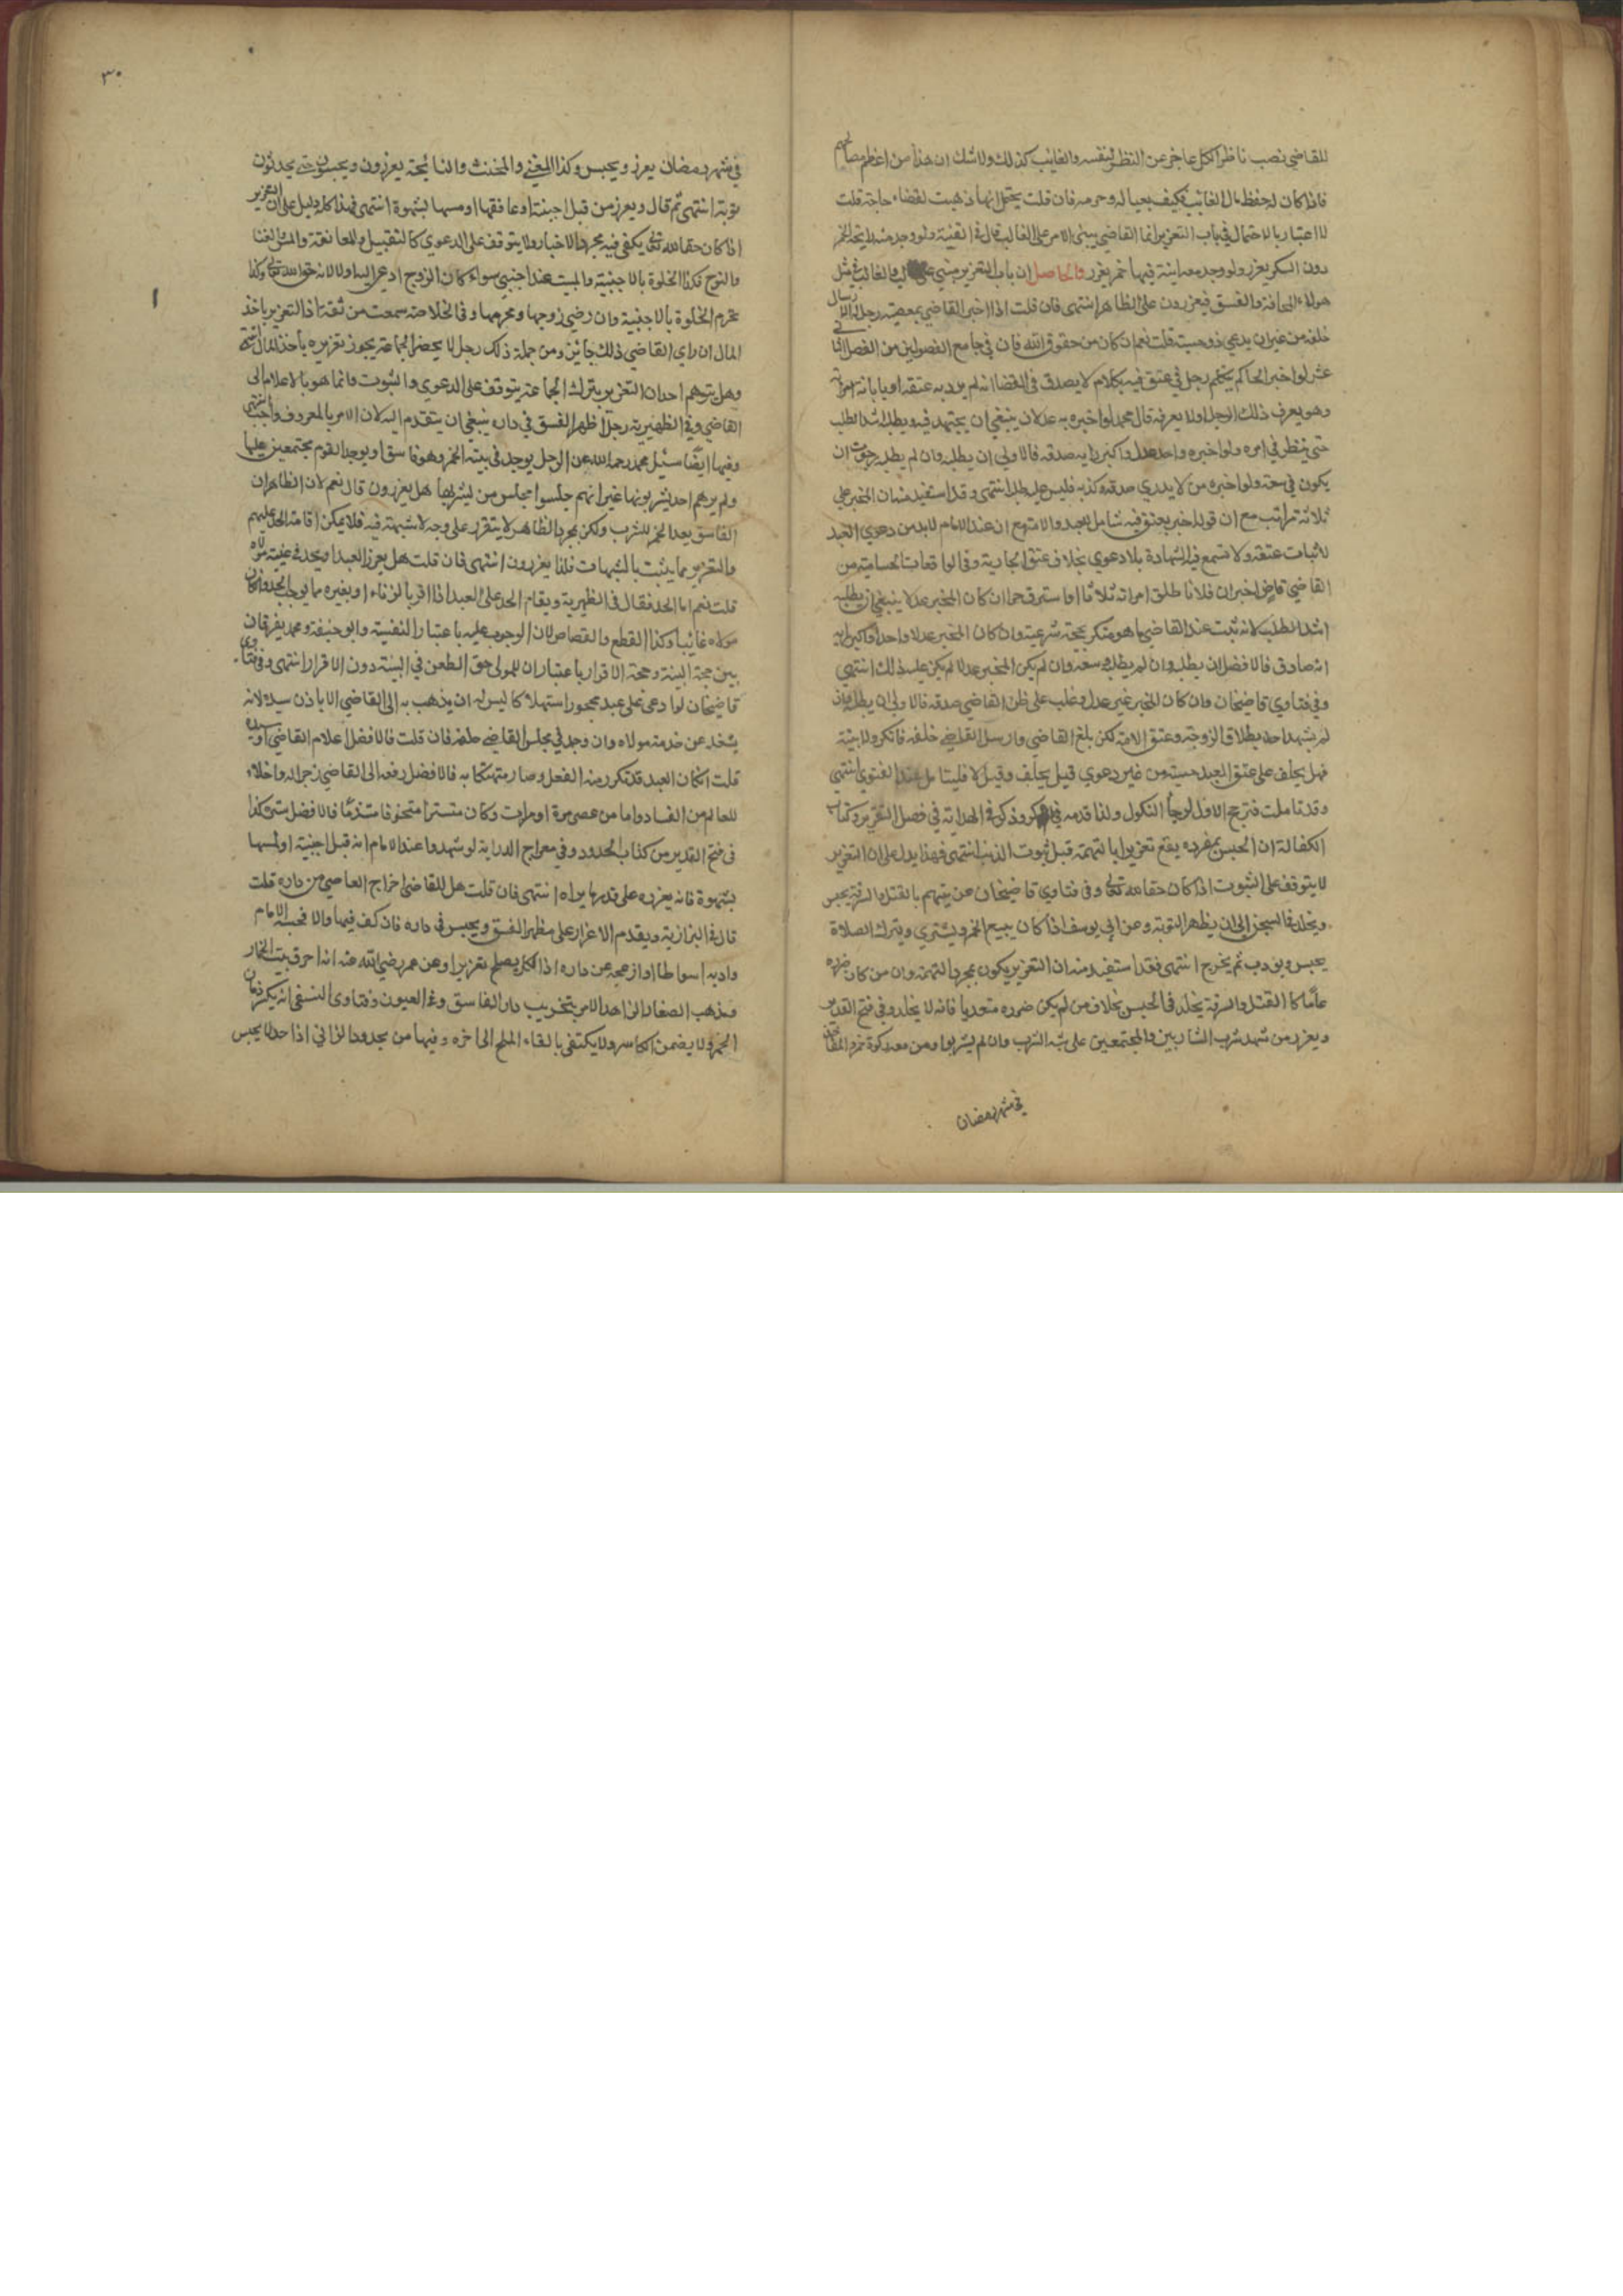 للقاضي نصب ناظرا لكل عاجز عن النظر لنفسه والغايب كذلك ولا شك ان هذا من اعظم مصالحهم
فاذا كان له حفظ مال الغائب فكيف بعياله وحرمه فان قلت يحتمل انها ذهبت لقضاء حاجة قلت
لا اعتبار بالاحتمال في باب التعزير انما القاضي يبنى الامر على الغالب قال في القنية ولو وجد منه رايحة الخمر
دون السكر يعزر ولو وجد معه انية فيها خمر يعزر والحاصل ان باب التعزير مبني على الغالب في مثل
هولاء المجانة والفسق فيعزرون على الظاهر انتهى فان قلت اذا اخبر القاضي بمعصية رجل له ارسال
خلفه من غير ان يدعي ذو حسبة قلت نعم ان كان من حقوق الله فان في جامع الفصولين من الفصل الثاني
عشر لو اخبر الحاكم رجل في عتق فيه بكلام لا يصدق في القضا انه لم يرد به عتقه او بابانة امراته
وهو يعرف ذلك الرجل او لا يعرفه قال محمد لو اخبره به عدلان ينبغي ان يجتهد فيه ويطلبه اشد الطلب
حتى ينظر في امره ولو اخبره واحد عدل واكبر رايه صدقه فالاولى ان يطلبه وان لم يطلبه رجوت ان
يكون في سعة ولو اخبره من لا يدري صدقه كذبه فليس عليه طلبه انتهى وقد استفيد منه ان المخبر على
ثلاثة مراتب مع ان قوله اخبر بعتق فيه شامل للعبد والامة مع ان عند الامام لا بد من دعوي العبد
لاثبات عتقه ولا تسمع فيه الشهادة بلا دعوي بخلاف عتق الجارية وفي الواقعات الحسامية من
القاضي قاض اخبر ان فلانا طلق امراته ثلاثا او استرق حرا ان كان المخبر عدلا ينبغي ان يطلبه
اشد الطلب لانه ثبت عند القاضي ما هو منكر بحجة شرعية وان كان المخبر عدلا واحدا واكبر رايه
انه صادق فالافضل ان يطلبه وان لم يطلبه وسعه وان لم يكن المخبر عدلا لم يكن عليه ذلك انتهي
وفي فتاوي قاضيخان وان كان المخبر غير عدل وغلب على ظن القاضي صدقه فالاولى ان يطلبه فان
لم يشهد احد بطلاق الزوجة وعتق الامة لكن بلغ القاضي وارسل القاضي خلفه فانكر ولا بينة
فهل يحلف على عتق العبد حسبة من غير دعوي قيل يحلف وقيل لا فليتامل عند الفتوي انتهي
وقد تاملت فترجح الاول لوجا النكول ولذا قدمه في الذكر وذكر في الهداية في فصل التعزير وكتاب
الكفالة ان الحبس بمفرده يقع تعزيرا بالتهمة قبل ثبوت الذنب انتهى فهذا يدل على ان التعزير
لا يتوقف على الثبوت اذا كان حقا لله تعالى وفي فتاوي قاضيخان عن يتهم بالقتل والسرقة يحبس
ويخلد في السجن الى ان يظهر التوبة وعن ابي يوسف اذا كان يبيع الخمر ويشتري ويترك الصلاة
يحبس ويودب ثم يخرج انتهى فقد استفيد منه ان التعزير يكون بمجرد التهمة وان من كان ضرره
عاما كالقتل والسرقة يخلد في الحبس بخلاف من لم يكن ضرره متعديا فانه لا يخلد وفي فتح القدير
ويعزر من شهد شرب الشاربين والمجتمعين على شبه الشرب وان لم يشربوا ومن معه ركوة خمر والمفطر
في شهر رمضان
٣٠
في شهر رمضان يعزر ويحبس وكذا المغني والمخنث والنايحة يعزرون ويحبسون حتى يحدثون
توبة انتهى ثم قال ويعزر من قبل اجنبة او عانقها او مسها بشهوة انتهى فهذا كله دليل على ان التعزير
اذا كان حقا لله تعالى يكفي فيه مجرد الاخبار ولا يتوقف على الدعوي كالتقبيل والمعانقة والمس والغنا
والنوح فكذا الخلوة بالاجنبية والمبيت عند اجنبي سواء كان الزوج ادعى اليه او لا لانه حق الله تعالى وكذا
يحرم الخلوة بالاجنبية وان رضي زوجها ومحرمها وفي الخلاصة سمعت من ثقة ان التعزير باخذ
المال ان راي القاضي ذلك جائز ومن جملة ذلك رجل لا يحضر الجماعة يجوز تعزيره بأخذ المال انتهى
وهل يتوهم احد ان التعزير بترك الجماعة يتوقف على الدعوي والثبوت وانما هو بالاعلام الى
القاضي وفي الظهيرية رجل اظهر الفسق في داره ينبغي ان يتقدم اليه لان الامر بالمعروف واجب انتهى
وفيها ايضا سئيل محمد رحمه الله عن الرجل يوجد في بيته الخمر وهو فاسق او يوجد القوم مجتمعين عليها
ولم يرهم احد يشربونها غير انهم جلسوا مجلس من يشربها هل يعزرون قال نعم لان الظاهر ان
الفاسق يعد الخمر للشرب ولكن بمجرد الظاهر لا يتقرر على وجه لا شبهة فيه فلا يمكن اقامة الحد عليهم
والتعزير مما يثبت بالشبهات فلذا يعزرون انتهى فان قلت هل يعزر العبد او يحد في غيبة مولاه
قلت نعم اما الحد فقال في الظهيرية ويقام الحد على العبد اذا اقر بالزناء او بغيره مما يوجب الحد وان كان
مولاه غايبا وكذا القطع والقصاص لان الوجوب عليه باعتبار النفسية وابو حنيفة ومحمد يفرقان
بين حجة البينة وحجة الاقرار باعتبار ان للمولى حق الطعن في البينة دون الاقرار انتهى وفي فتاوى
قاضيخان لو ادعى على عبد محجور استهلاكا ليس له ان يذهب به الى القاضي الا باذن سيده لانه
يشغله عن خدمة مولاه وان وجد في مجلس القاضي حلفه فان قلت فالافضل اعلام القاضي او سيده
قلت ان كان العبد قد تكرر منه الفعل وصار متهتكا به فالافضل رفعه الى القاضي زجرا له واخلاء
للعالم من الفساد واما من عصى مرة او مرات وكان متسترا متخوفا متندما فالافضل ستره كذا
في فتح القدير من كتاب الحدود وفي معراج الدراية لو شهدوا عند الامام انه قبل اجنبية او لمسها
بشهوة فانه يعزره على قدر ما يراه انتهى فان قلت هل للقاضي اخراج العاصي من داره قلت
قال في البزازية ويقدم الاعذار على مظهر الفسق ويحبس في داره فان كف فيها والا فحبسه الامام
وادبه اسواطا او ازعجه عن داره اذ الكل يصلح تعزيرا وعن عمر رضي الله عنه انه احرق بيت الخمار
ومذهب الصفار الزاهد الامر بتخريب دار الفاسق وفي العيون وفتاوى النسفي انه يكسر دنان
الخمر ولا يضمن الكاسر ولا يكتفي بالقاء الملح الى اخره وفيها من يحدود الزاني اذا حد لا يحبس